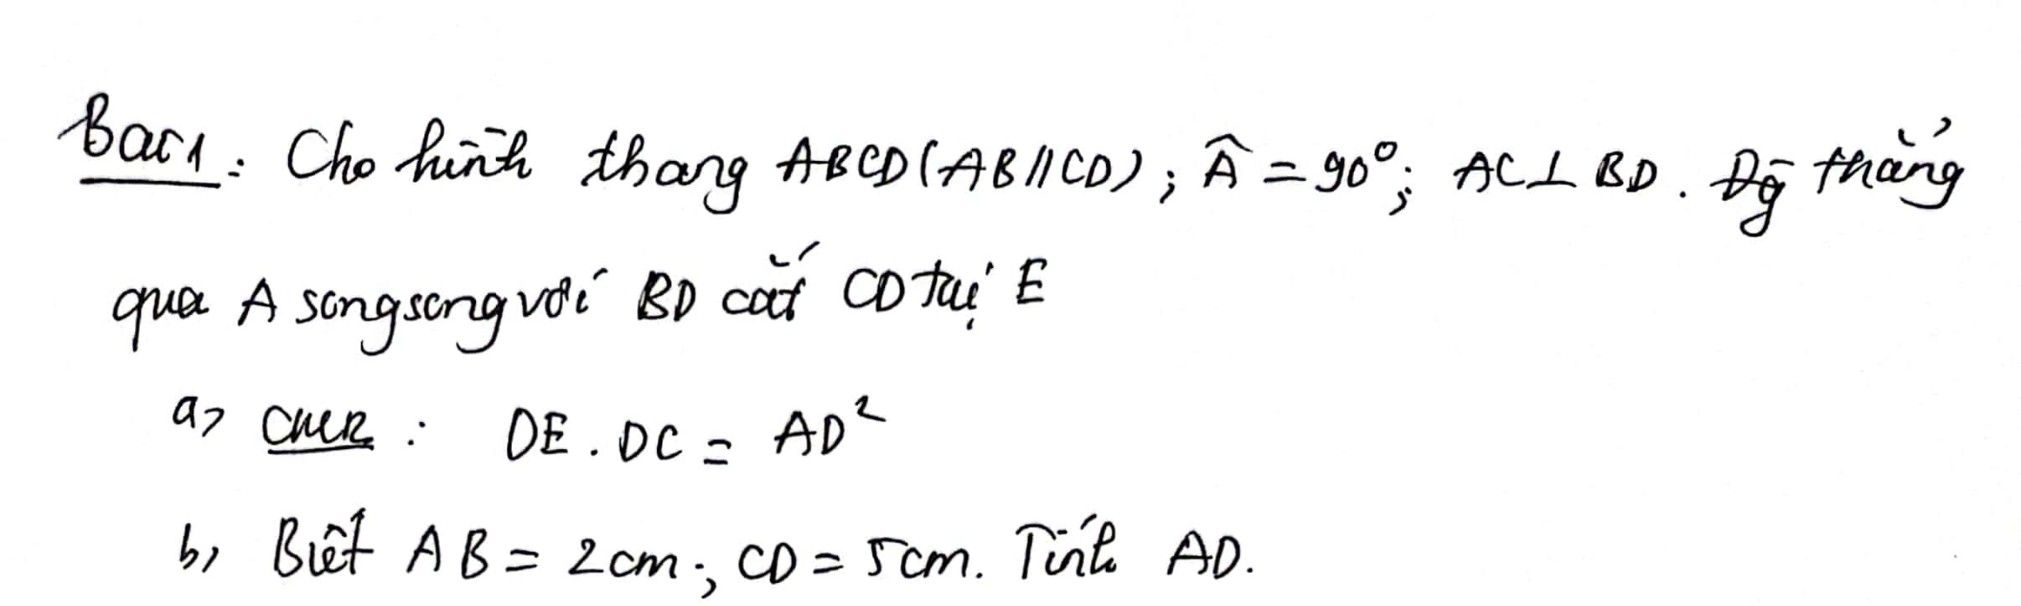 Bài 1: Cho hình thang ABCD (AB // CD); Â = 90°; AC ⊥ BD. Đg thẳng
qua A song song với BD cắt CD tại E
a, CMR: DE. DC = AD²
b, Biết AB = 2cm; CD = 5cm. Tính AD.